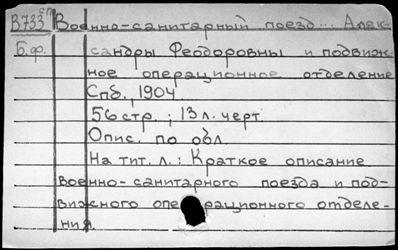 В733 Военно-санитарный поезд... Алек-
Б.ф. сандры Феодоровны и подвиж-
ное операционное отделение
Спб., 1904
56 стр.; 13 л. черт.
Опис. по обл.
На тит. л.: Краткое описание
военно-санитарного поезда и под-
вижного операционного отделе-
ния.